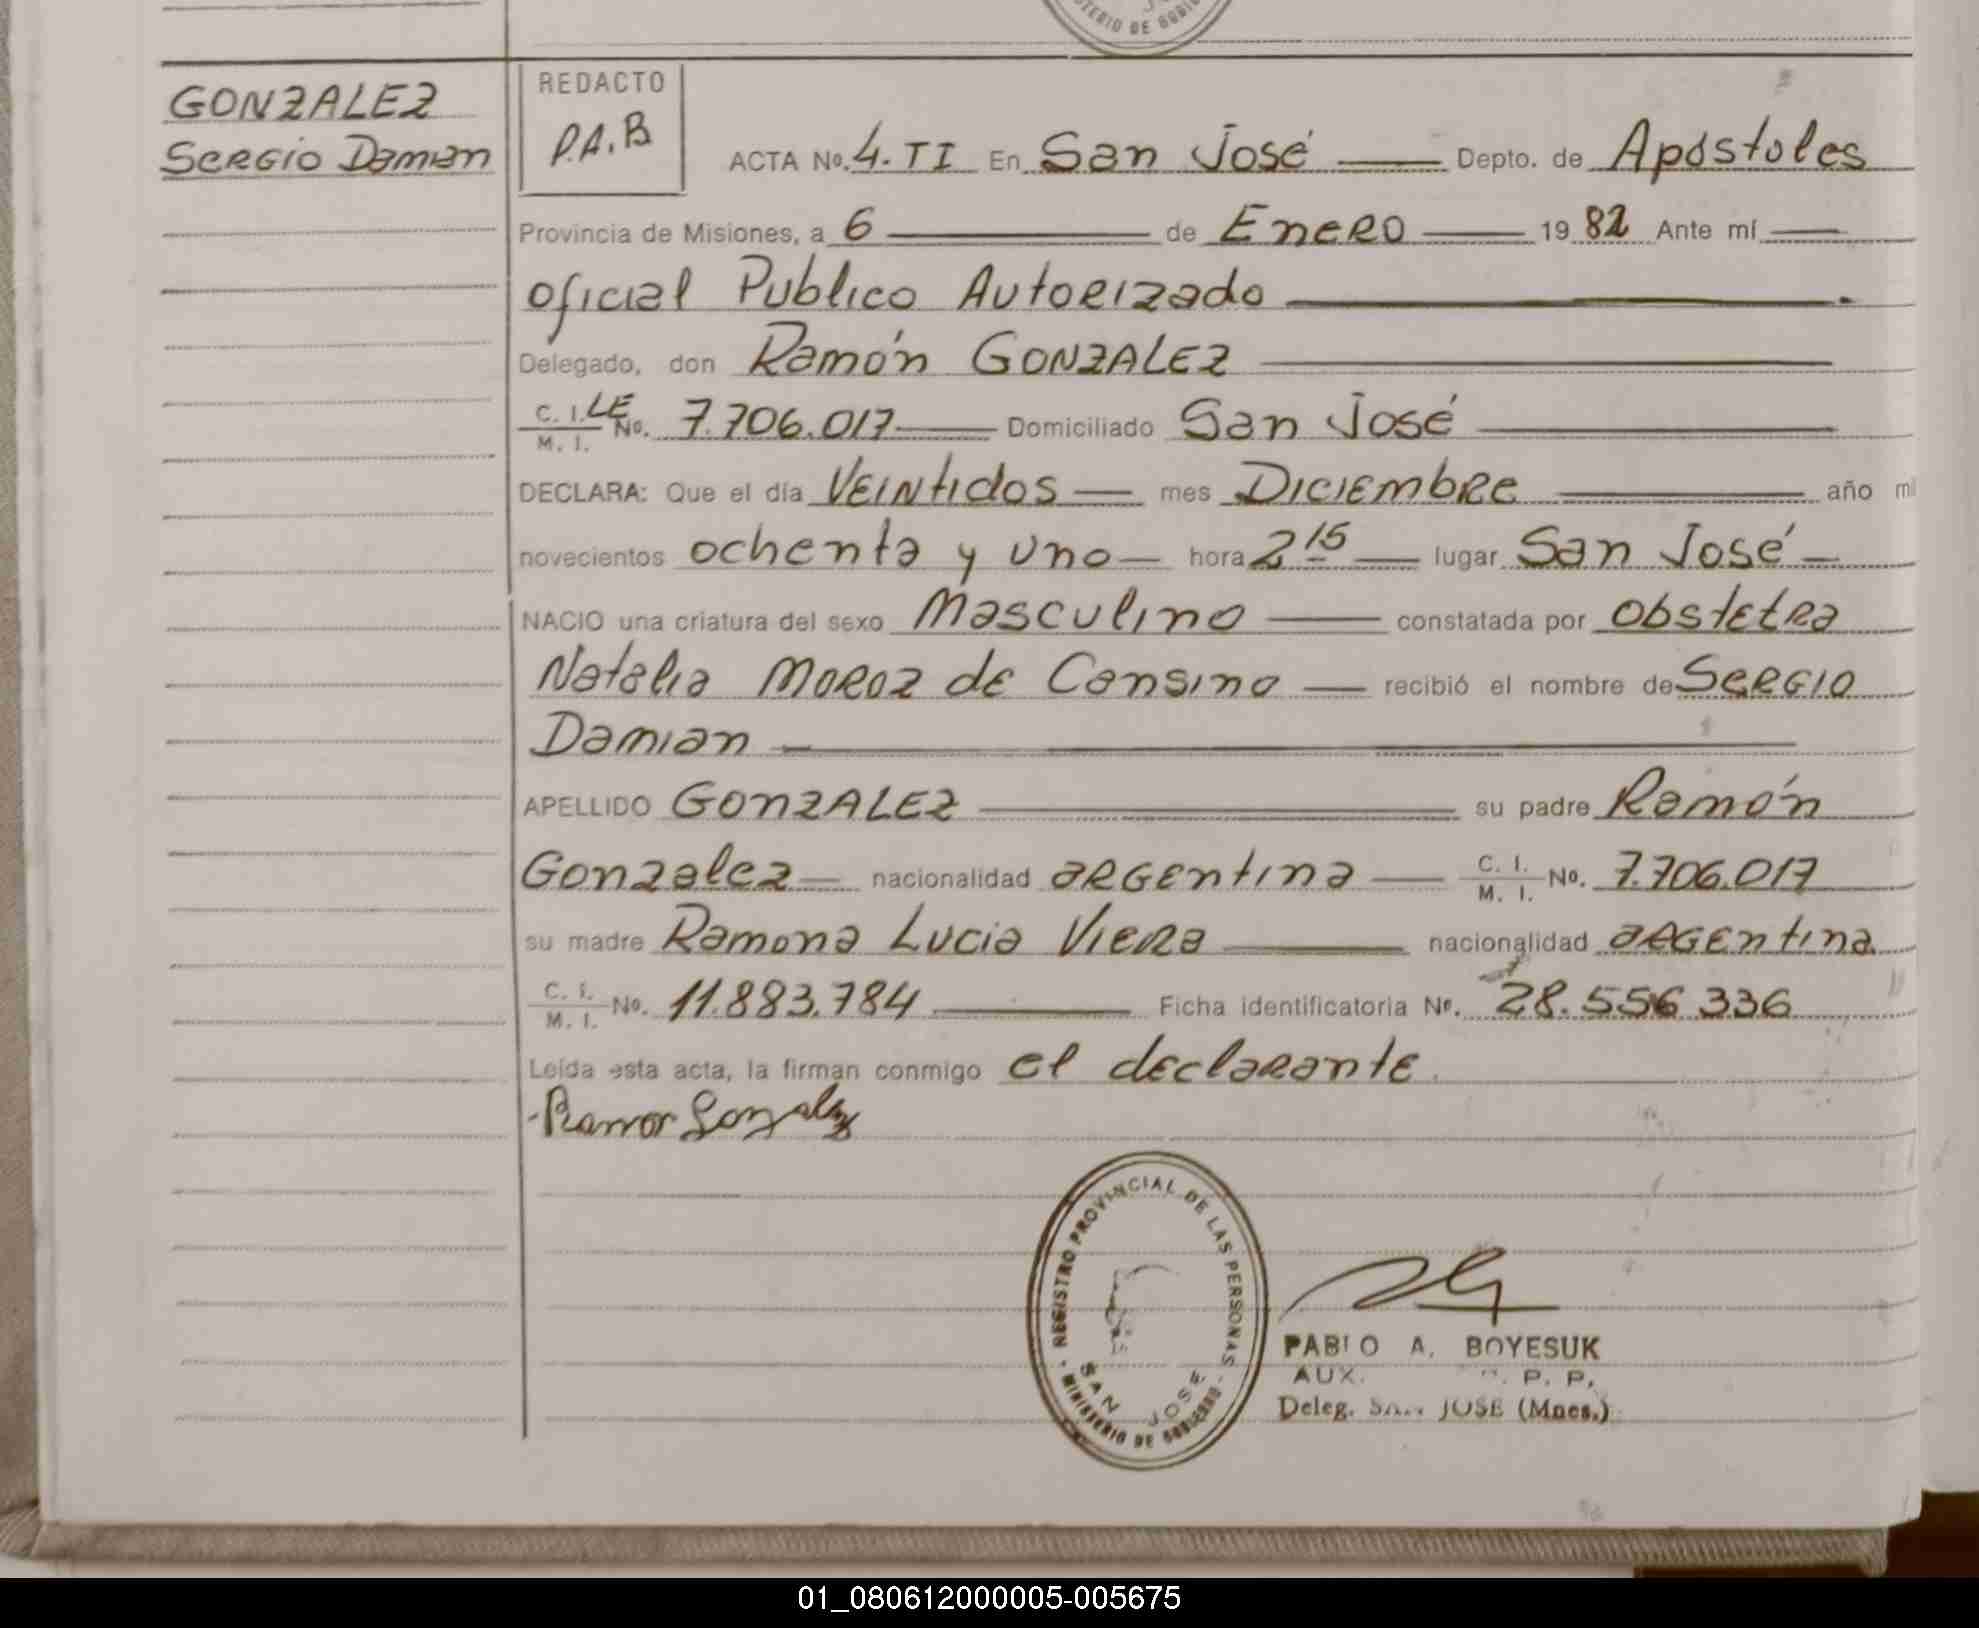 MINISTERIO DE GOBIERNO
GONZALEZ
Sergio Damian
REDACTO
P.A.B
ACTA No. 4. TI En San José Depto. de Apóstoles
Provincia de Misiones, a 6 de Enero 19 82 Ante mí
oficial Publico Autorizado
Delegado, don Ramón GONZALEZ
C. I. LE M. I. No. 7.706.017 Domiciliado San José
DECLARA: Que el día Veintidos mes Diciembre año mi
novecientos ochenta y uno hora 2 15 lugar San José
NACIO una criatura del sexo Masculino constatada por Obstetra
Natalia Moroz de Cansino recibió el nombre de Sergio
Damian
APELLIDO GONZALEZ su padre Ramón
Gonzalez nacionalidad argentina C. I. M. I. No. 7.706.017
su madre Ramona Lucia Viera nacionalidad argentina
C. I. M. I. No. 11.883.784 Ficha identificatoria No. 28.556.336
Leída esta acta, la firman conmigo el declarante.
Ramon Gonzalez
REGISTRO PROVINCIAL DE LAS PERSONAS
SAN JOSE
MINISTERIO DE GOBIERNO
PABLO A. BOYESUK
AUX. P. P.
Deleg. SAN JOSE (Mnes.)
01_080612000005-005675